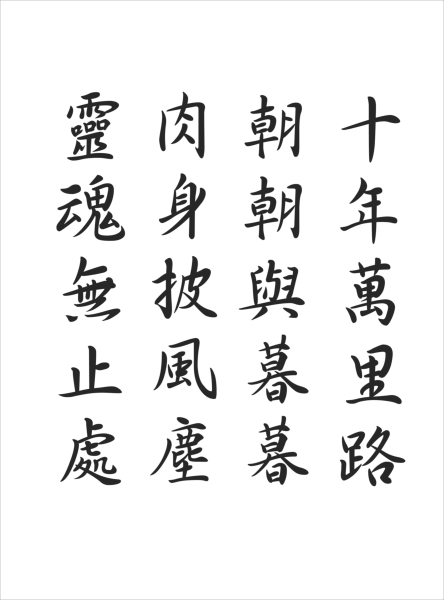 十年萬里路
朝朝與暮暮
肉身披風塵
靈魂無止處